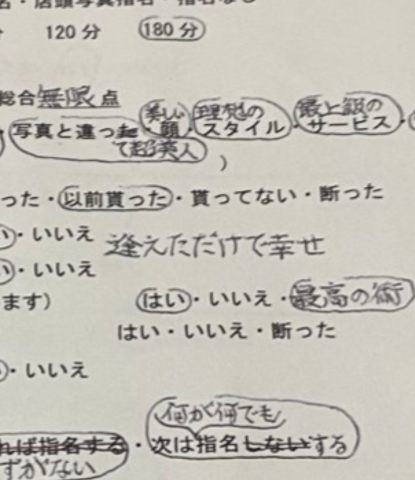 ・店頭写真指名・指名なし
120分 180分
総合無限点
美しい 理想の 最上級の
写真と違った・顔・スタイル・サービス・
て超美人
)
った・以前貰った・貰ってない・断った
い・いいえ 逢えただけで幸せ
い・いいえ
ます) はい・いいえ・最高の術
はい・いいえ・断った
・いいえ
何が何でも
れば指名する・次は指名しないする
ずがない